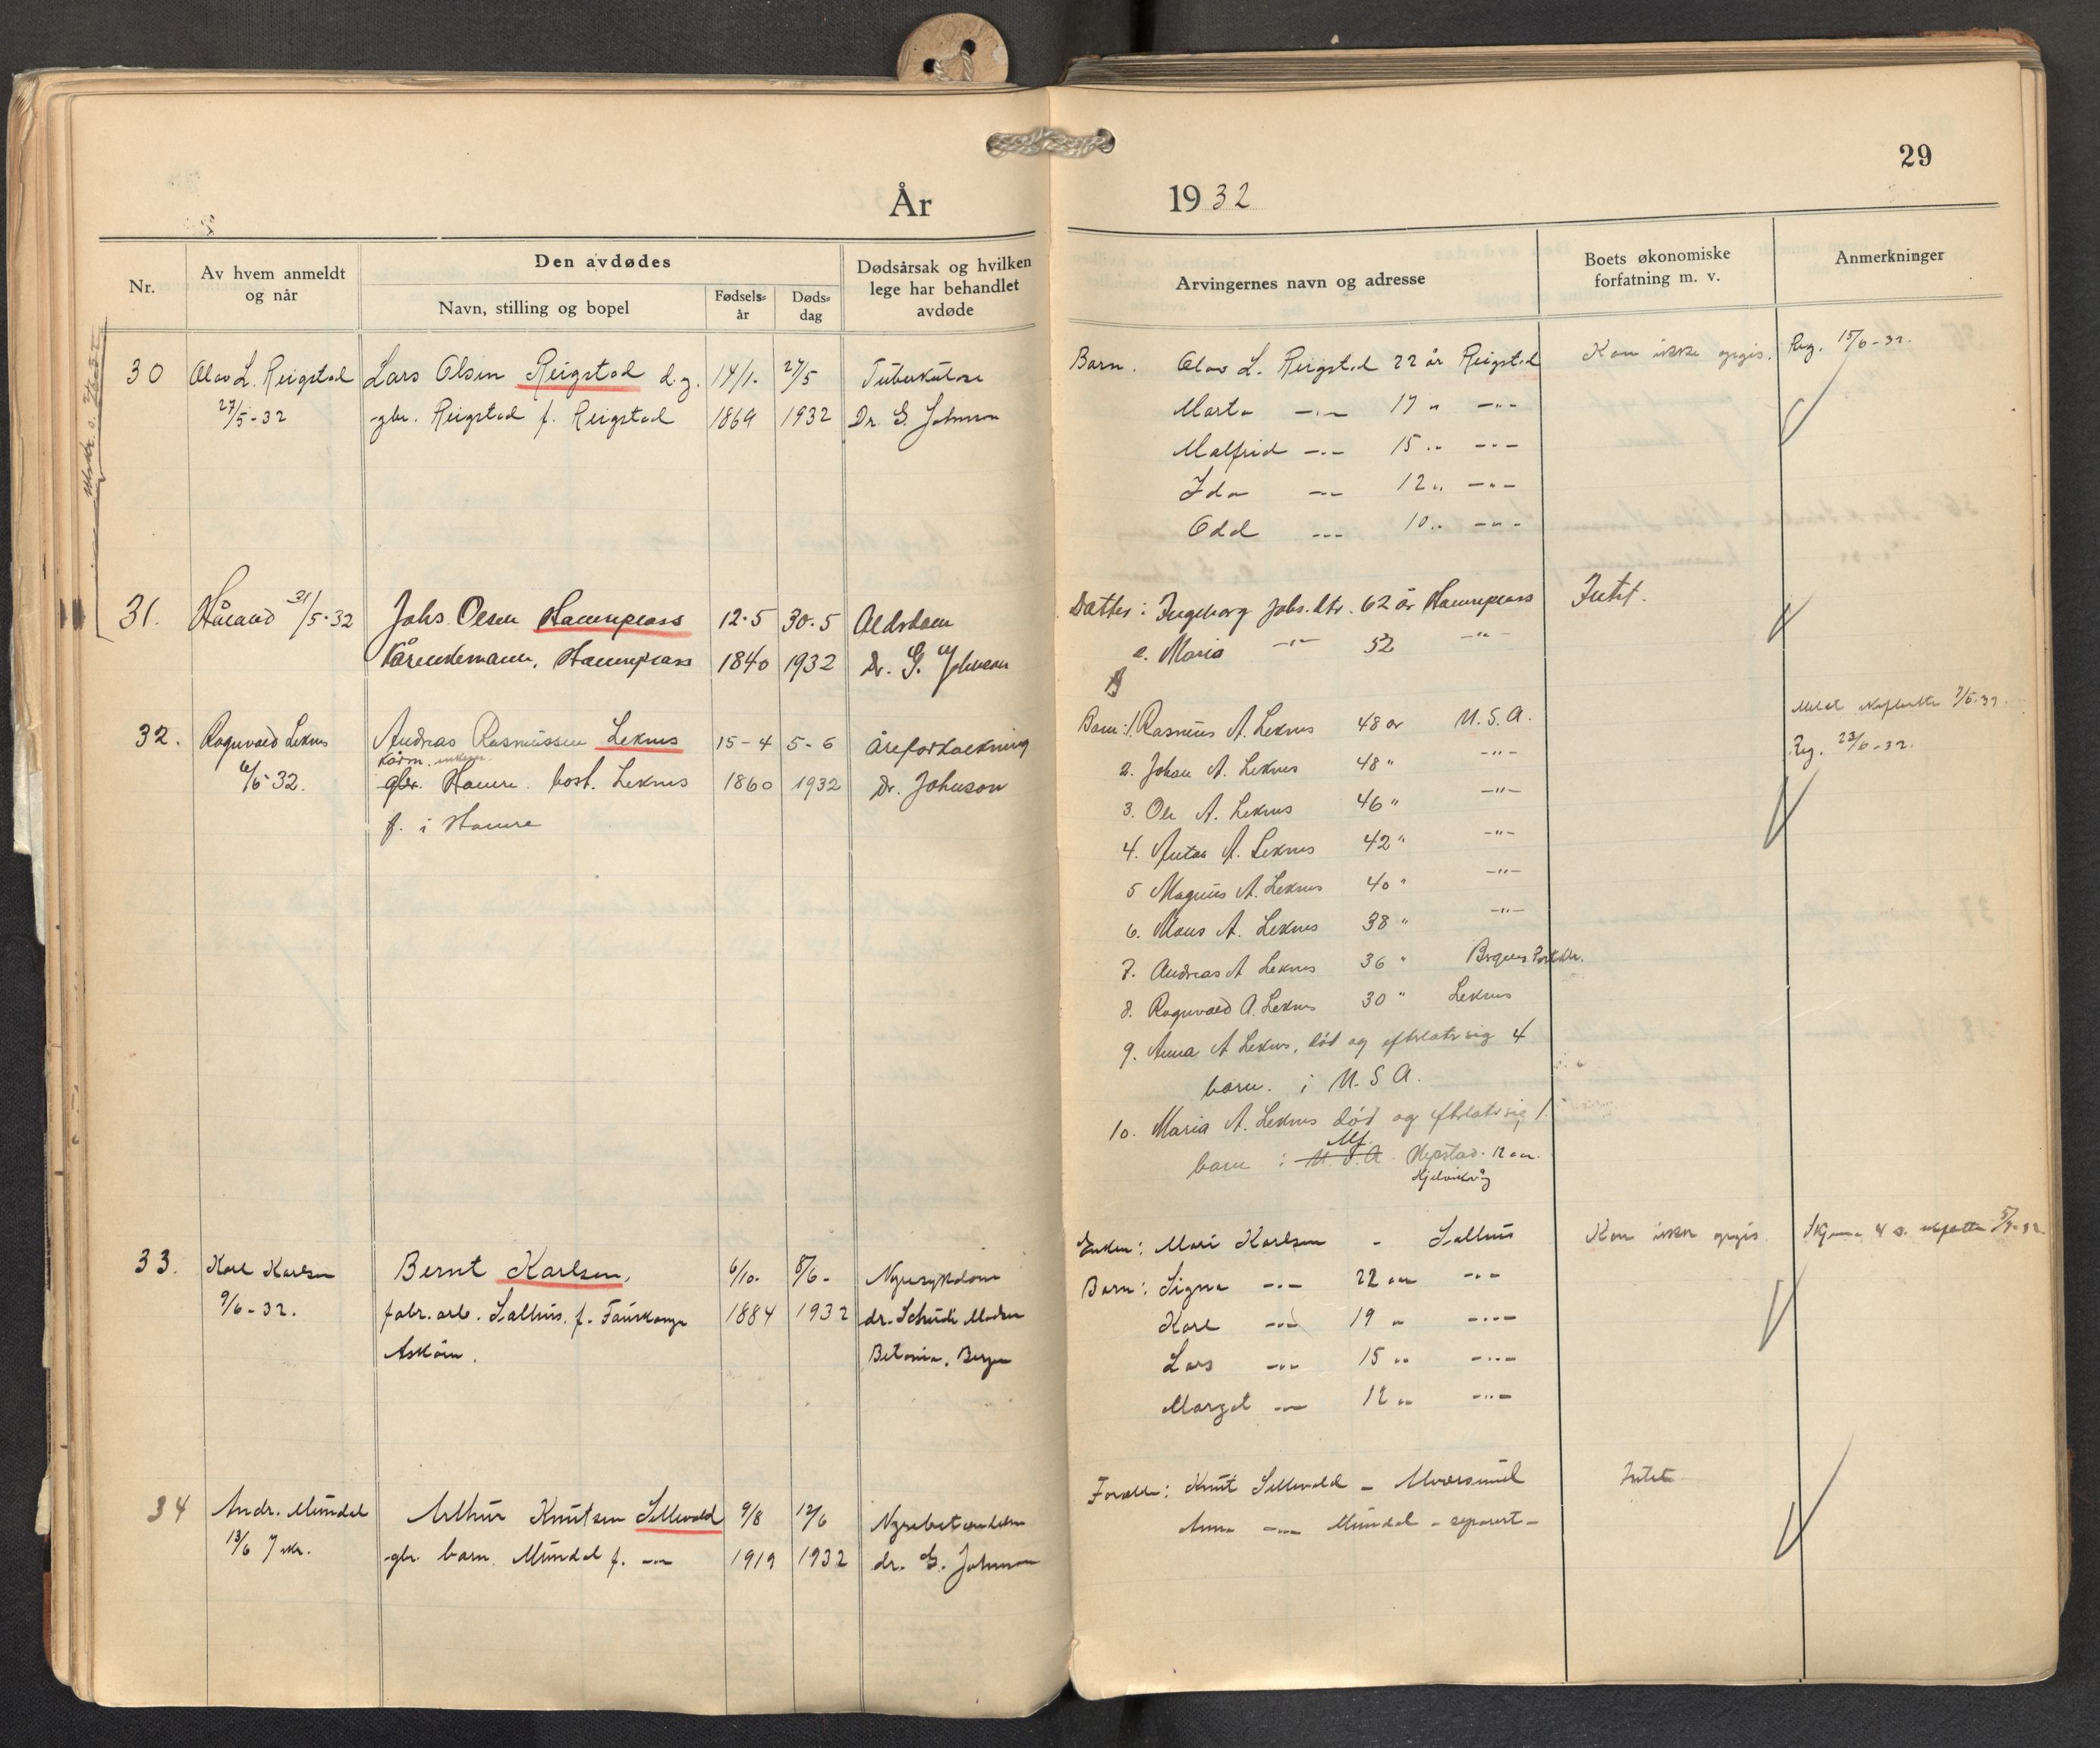 29
År 1932
Nr.
Av hvem anmeldt og når
Den avdødes
Navn, stilling og bopel
Fødselsår
Dødsdag
Dødsårsak og hvilken lege har behandlet avdøde
Arvingernes navn og adresse
Boets økonomiske forfatning m. v.
Anmerkninger
30 Olav L. Reigstad Lars Olsen Reigstad d.y. 14/1- 27/5 Tuberkulose
27/5-32 gbr. Reigstad f. Reigstad 1869 1932 Dr. G. Johnson
Barn. Olav L. Reigstad 22 år Reigstad Kan ikke opgis. Reg. 15/6-32.
Marta —"— 17 " —"—
Malfrid —"— 15 " —"—
Ida —"— 12 " —"—
Odd —"— 10 " —"—
31. Håland 31/5-32 Johs. Olsen Hamreplass 12-5 30-5 Alderdom
Kårenkemann, Hamreplass 1840 1932 Dr. G. Johnson
Datter: Ingeborg Johs.dtr. 62 år Hamreplass Intet.
2. Maria —"— 52 —"—
32. Ragnvald Leknes Andreas Rasmussen Leknes 15-4 5-6 Åreforkalkning
6/6-32. gbr. Hamre. bost. Leknes 1860 1932 Dr. Johnson
f. i Hamre
Barn: 1. Rasmus A. Leknes 48 år U.S.A.
2. Johan A. Leknes 48 " —"—
3. Ole A. Leknes 46 " —"—
4. Anton A. Leknes 42 " —"—
5 Magnus A. Leknes 40 " —"—
6. Mons A. Leknes 38 " —"—
7. Andreas A Leknes 36 " Bergens
8. Ragnvald A. Leknes 30 " Leknes
9. Anna A Leknes, død og efterlatt sig 4
barn. i U.S.A.
10. Maria A. Leknes død og efterlatt sig 1
barn i U.S.A. 12 år.
Hjelmåsvåg
Reg. 23/6-32.
33. Karl Karlsen Bernt Karlsen, 6/10- 8/6- Nyresykdom
9/6-32. fabr. arb. Salhus. f. Fauskanger 1884 1932 dr.
Askøen. Betania, Bergen
Enken: Mari Karlsen - Salhus Kan ikke opgis.
Barn: Signe —"— 22 år —"—
Karl —"— 19 " —"—
Lars —"— 15 " —"—
Margit —"— 12 " —"—
34 Andr. Mundal Arthur Knutsen Sellevold 9/8 12/6 Nyrebetendelse
13/6 gbr. barn. Mundal f. —"— 1919 1932 dr. G. Johnson
Foreldre: Knut Sellevold - Alversund Intet
Anna —"— Mundal - separert -